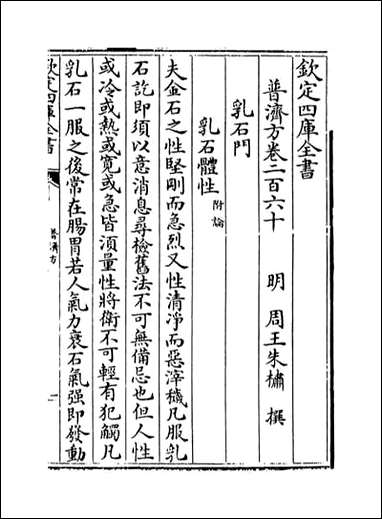 欽定四庫全書
普濟方卷二百六十
明 周王朱橚 撰
乳石門
乳石體性 附論
夫金石之性堅剛而急烈又性清凈而惡滓穢凡服乳
石訖即須以意消息尋檢舊法不可無備忌也但人性
或冷或熱或寛或急皆湏量性將衛不可輕有犯觸凡
乳石一服之後常在腸胃若人氣力衰石氣强即發動
欽定四庫全書
普濟方
一